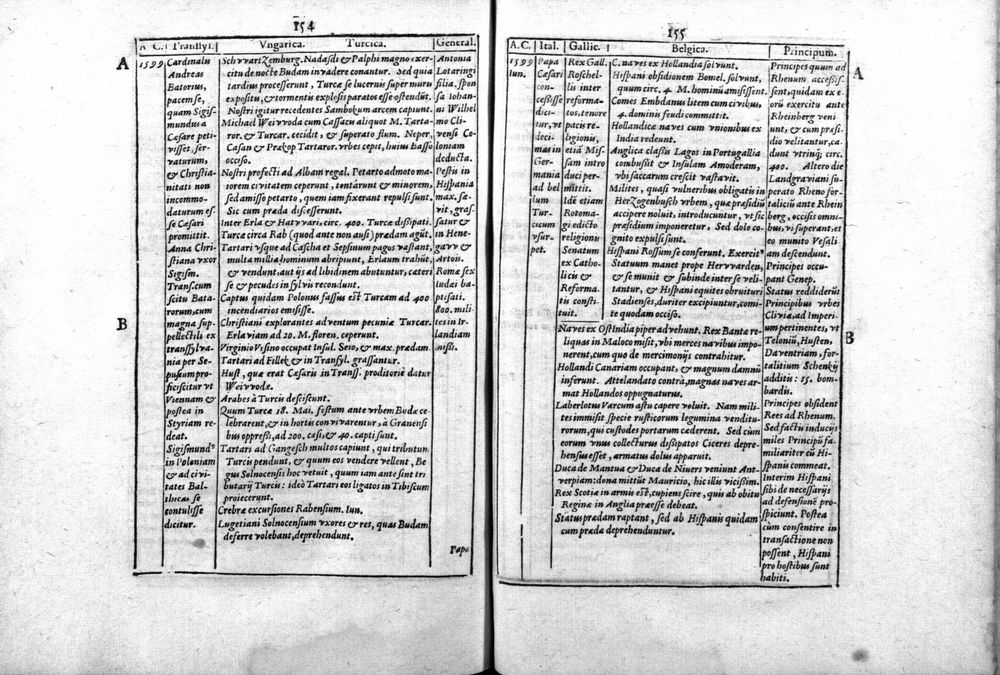 154
A. C.
Transsyl.
Vngarica. Turcica.
General.
A
1599
Cardinalis
Andreas
Batorius,
pacem se,
quam Sigis-
mundus a
Cæsare peti-
visset, ser-
vaturum,
& Christia-
nitati non
incommo-
daturum es-
se Cæsari
promittit.
Anna Chri-
stiana vxor
Sigism.
Trans. cum
scitu Bata-
rorum, cum
magna sup-
pellectili ex
transsylva-
nia per Se-
pusium pro-
ficiscitur vt
Viennam &
postea in
Styriam re-
deat.
Sigismundꝰ
in Poloniam
& ad civi-
tates Bal-
thicas se
contulisse
dicitur.
B
Schvvarizemburg. Nadasdi & Palphi magno exer-
citu de nocte Budam invadere conantur. Sed quia
tardius processerunt, Turcæ se lucernis super muru
expositu, & tormentis explosis paratos esse ostendũt.
Nostri igitur recedentes Sambokum arcem capiunt.
Michael Weivvoda cum Cassacu aliquot M. Tarta-
ror. & Turcar. cecidit, & superato flum. Neper,
Casan & Prakop Tartaror. vrbes cepit, huius Basso
occiso.
Nostri profecti ad Albam regal. Petardo admoto ma-
iorem civitatem ceperunt, tentarunt & minorem,
sed amisso petarto, quem iam fixerant repulsi sunt.
Sic cum præda discesserunt.
Inter Erla & Hatvvari, circ. 400. Turcæ dissipati.
Turcæ circa Rab (quod ante non ausi) prædam agũt.
Tartari vsque ad Cascha et Sepsinum pagos vastant,
multa millia hominum abripiunt, Erlaum trahũt,
& vendunt, aut ijs ad libidinem abutuntur, cæteri
se & pecudes in sylvis recondunt.
Captus quidam Polonus fassus est Turcam ad 400
incendiarios emisisse.
Christiani explorantes adventum pecuniæ Turcar.
Erlaviam ad 20. M. floren. ceperunt.
Virginio Vrsino occupat Insul. Scio, & max. prædam.
Tartari ad Fillek & in Transyl. grassantur.
Hust, quæ erat Cæsaris in Transs. proditoriè datur
Weivvodæ.
Arabes à Turcis desciscunt.
Quum Turcæ 18. Mai. festum ante vrbem Budæ ce-
lebrarent, & in hortis convivarentur, à Granensi
bus oppressi, ad 200. cæsi, & 40. capti sunt.
Tartari ad Gangesch multos capiunt, qui tributum
Turcis pendunt, & quum eos vendere vellent, Be
gus Solnocensis hoc vetuit, quum iam ante sint tri
butarij Turcis: ideò Tartari eos ligatos in Tibiscum
proiecerunt.
Crebræ excursiones Rabensium. Iun.
Lugetiani Solnocensium vxores & res, quas Budam
deferre volebant, deprehendunt.
Antonia
Lotaringi
filia, spon
sa Iohan-
ni Wilhel
mo Cli-
vensi Co-
loniam
deducta.
Pestis in
Hispania
max. sæ-
vit, gras-
satur &
in Hene-
gavv &
Artois.
Romæ sex
Iudæi ba-
ptisati.
800. mili-
tes in Ir-
landiam
missi.
Papa
155
A. C.
Ital.
Gallic.
Belgica.
Principum.
1599
Iun.
Papa
Cæsari
con-
cessisse
dici-
tur, vt
deci-
mas in
Ger
mania
ad bel
lum
Tur-
cicum
vsur-
pet.
Rex Gall.
Roschel-
lis inter
reforma-
tos, tenore
pacis re-
ligionis,
etiã Mis-
sam intro
duci per-
mittit.
Idẽ etiam
Rotoma-
gi edicto
religionu
Senatum
ex Catho-
licis &
Reforma-
tis consti-
tuit.
C. naves ex Hollandia solvunt.
Hispani obsidionem Bomel. solvunt,
quum circ. 4. M. hominũ amisissent.
Comes Embdanus litem cum civibus,
4. dominis feudi committit.
Hollandicæ naves cum vnionibus ex
India redeunt.
Anglica classis Lagos in Portugallia
combussit & Insulam Amoderam,
vbi saccarum crescit vastavit.
Milites, quasi vulneribus obligatis in
Herzogenbusch vrbem, quæ præsidiũ
accipere noluit, introducuntur, vt sic
præsidium imponeretur, Sed dolo co-
gnito expulsi sunt.
Hispani Rossum se conferunt. Exercitꝰ
Statuum manet prope Hervvarden,
& se munit & subinde inter se veli-
tantur, & Hispani equites obruituri
Stadienses, duriter excipiuntur, comi-
te quodam occiso.
Naves ex Ost India piper advehunt. Rex Bantæ re-
liquas in Maloco misit, vbi merces navibus impo-
nerent, cum quo de mercimonijs contrahitur.
Hollandi Canariam occupant, & magnum damnũ
inferunt. Attelandato contrà, magnas naves ar-
mat Hollandos oppugnaturus.
Laberlotus Varcum astu capere voluit. Nam mili-
tes immisit specie rusticorum legumina venditu-
rorum, qui custodes portarum caderent. Sed cùm
eorum vnus collecturus dissipatos Ciceres depre-
hensus esset, armatus dolus apparuit.
Duca de Mantua & Duca de Nivers veniunt Ant-
verpiam: dona mittũt Mauricio, hic illis vicissim.
Rex Scotiæ in armis est, cupiens scire, quis ab obitu
Reginæ in Anglia præesse debeat.
Status prædam raptant, sed ab Hispanis quidam
cum præda deprehenduntur.
Principes quum ad
Rhenum accessis-
sent, quidam ex e-
orũ exercitu ante
Rheinberg veni
unt, & cum præsi-
dio velitantur, ca-
dunt vtrinq; circ.
400. Altero die
Landgraviani su-
perato Rheno for-
talitiũ ante Rhein
berg, occisis omni-
bus, vi superant, et
eo munito Vesali
am descendunt.
Principes occu-
pant Genep.
Status reddiderũt
Principibus vrbes
Cliviæ, ad Imperi
um pertinentes, vt
Teloniũ, Husten,
Daventriam, for-
talitium Schenkij
additis: 15. bom-
bardis.
Principes obsident
Rees ad Rhenum.
Sed factu inducijs
miles Principũ fa-
miliariter cũ Hi-
spanis commeat.
Interim Hispani
sibi de necessarijs
ad defensionẽ pro-
spiciunt. Postea
cùm consentire in
transactione non
possent, Hispani
pro hostibus sunt
habiti.
A
B